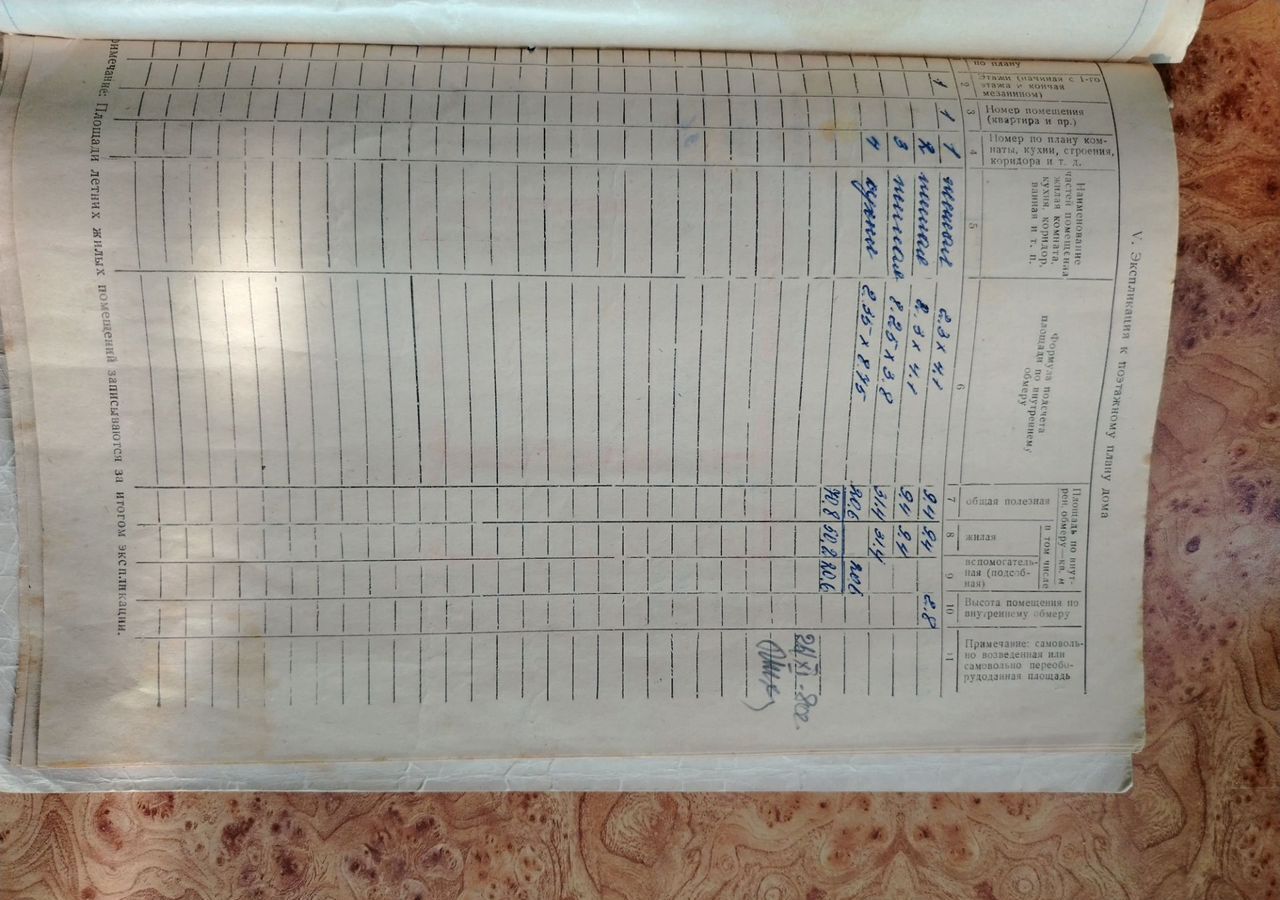 V. Экспликация к поэтажному плану дома
по плану
Этажи (начиная с 1-го
этажа и кончая
мезанином)
Номер помещения
(квартира и пр.)
Номер по плану ком-
наты, кухни, строения,
коридора и т. д.
Наименование
частей помещения
жилая комната,
кухня, коридор,
ванная и т. п.
Формула подсчета
площади по внутреннему
обмеру
Площадь по внут-
рен. обмеру—кв. м
общая полезная
в том числе
жилая
вспомогатель-
ная (подсоб-
ная)
Высота помещения по
внутреннему обмеру
Примечание: самоволь-
но возведенная или
самовольно переобо-
рудоданная площадь
2 3 4 5 6 7 8 9 10 11
1 1 1 жилая 2.3 х 4.1 9.4 9.4 2.8
2 жилая 2.3 х 4.1 9.4 9.4
3 жилая 8.25 х 3.8 31.4 31.4
4 кухня 2.35 х 8.75 20.6 20.6
70.8 50.2 20.6
24/XI-80г.
Примечание: Площади летних жилых помещений записываются за итогом экспликации.